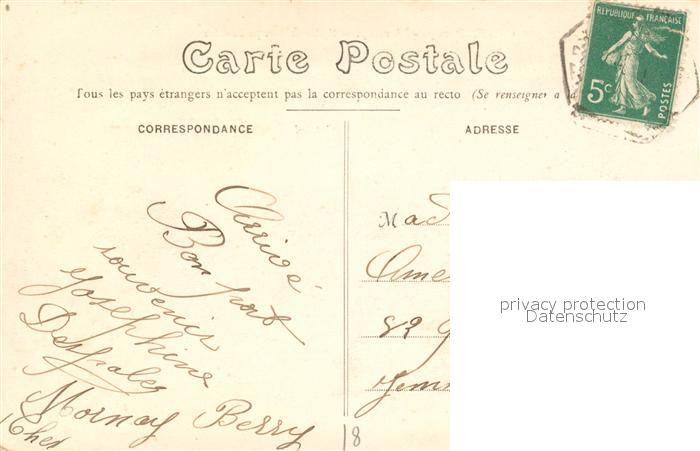 Carte Postale
Tous les pays étrangers n'acceptent pas la correspondance au recto (Se renseigner à la
RÉPUBLIQUE FRANÇAISE
5c
POSTES
CORRESPONDANCE
ADRESSE
Arrivé
Bon port
souvenir
Josephine
Mornay Berry
Cher
Mad
Ame
82
privacy protection
Datenschutz
18